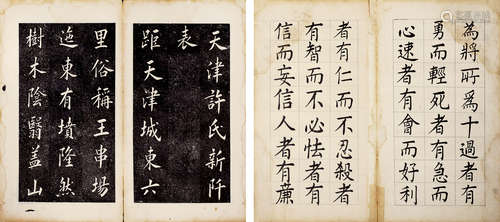 天津許氏新阡
表
距天津城東六
里俗稱王串場
迤東有墳隆然
樹木陰翳蓋山
為將所為十過者有
勇而輕死者有急而
心速者有貪而好利
者有仁而不忍殺者
有智而不必怯者有
信而妄信人者有廉